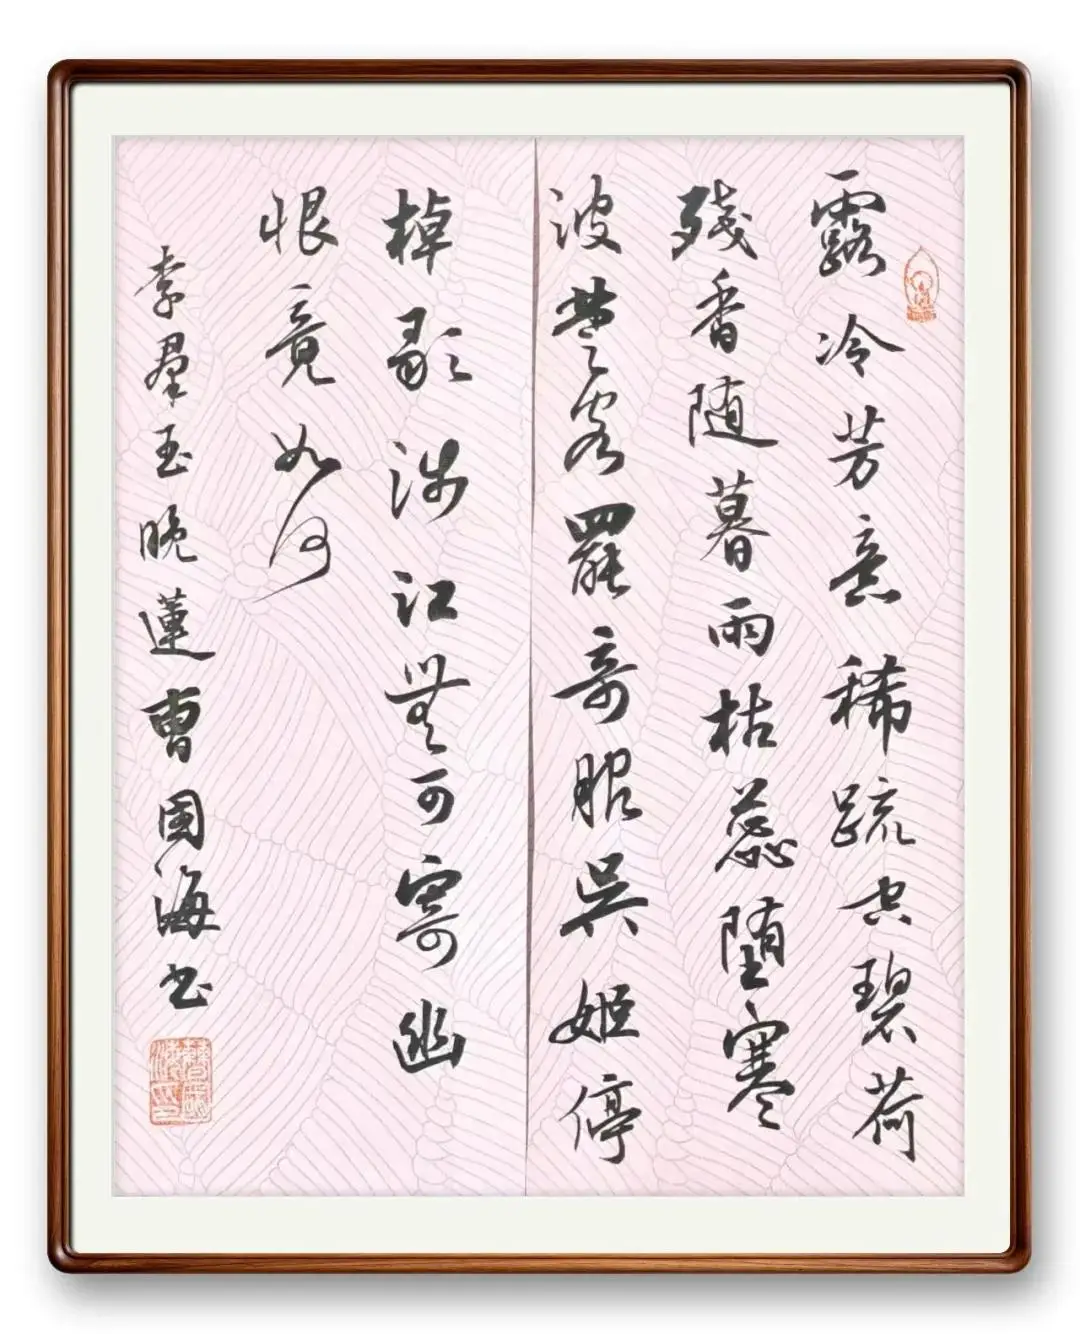 露冷芳意稀疏空碧荷
殘香随暮雨枯蕊堕寒
波楚客罷奇服吳姬停
棹歌涉江無可寄幽
恨竟如何
李羣玉晚蓮曹国海书